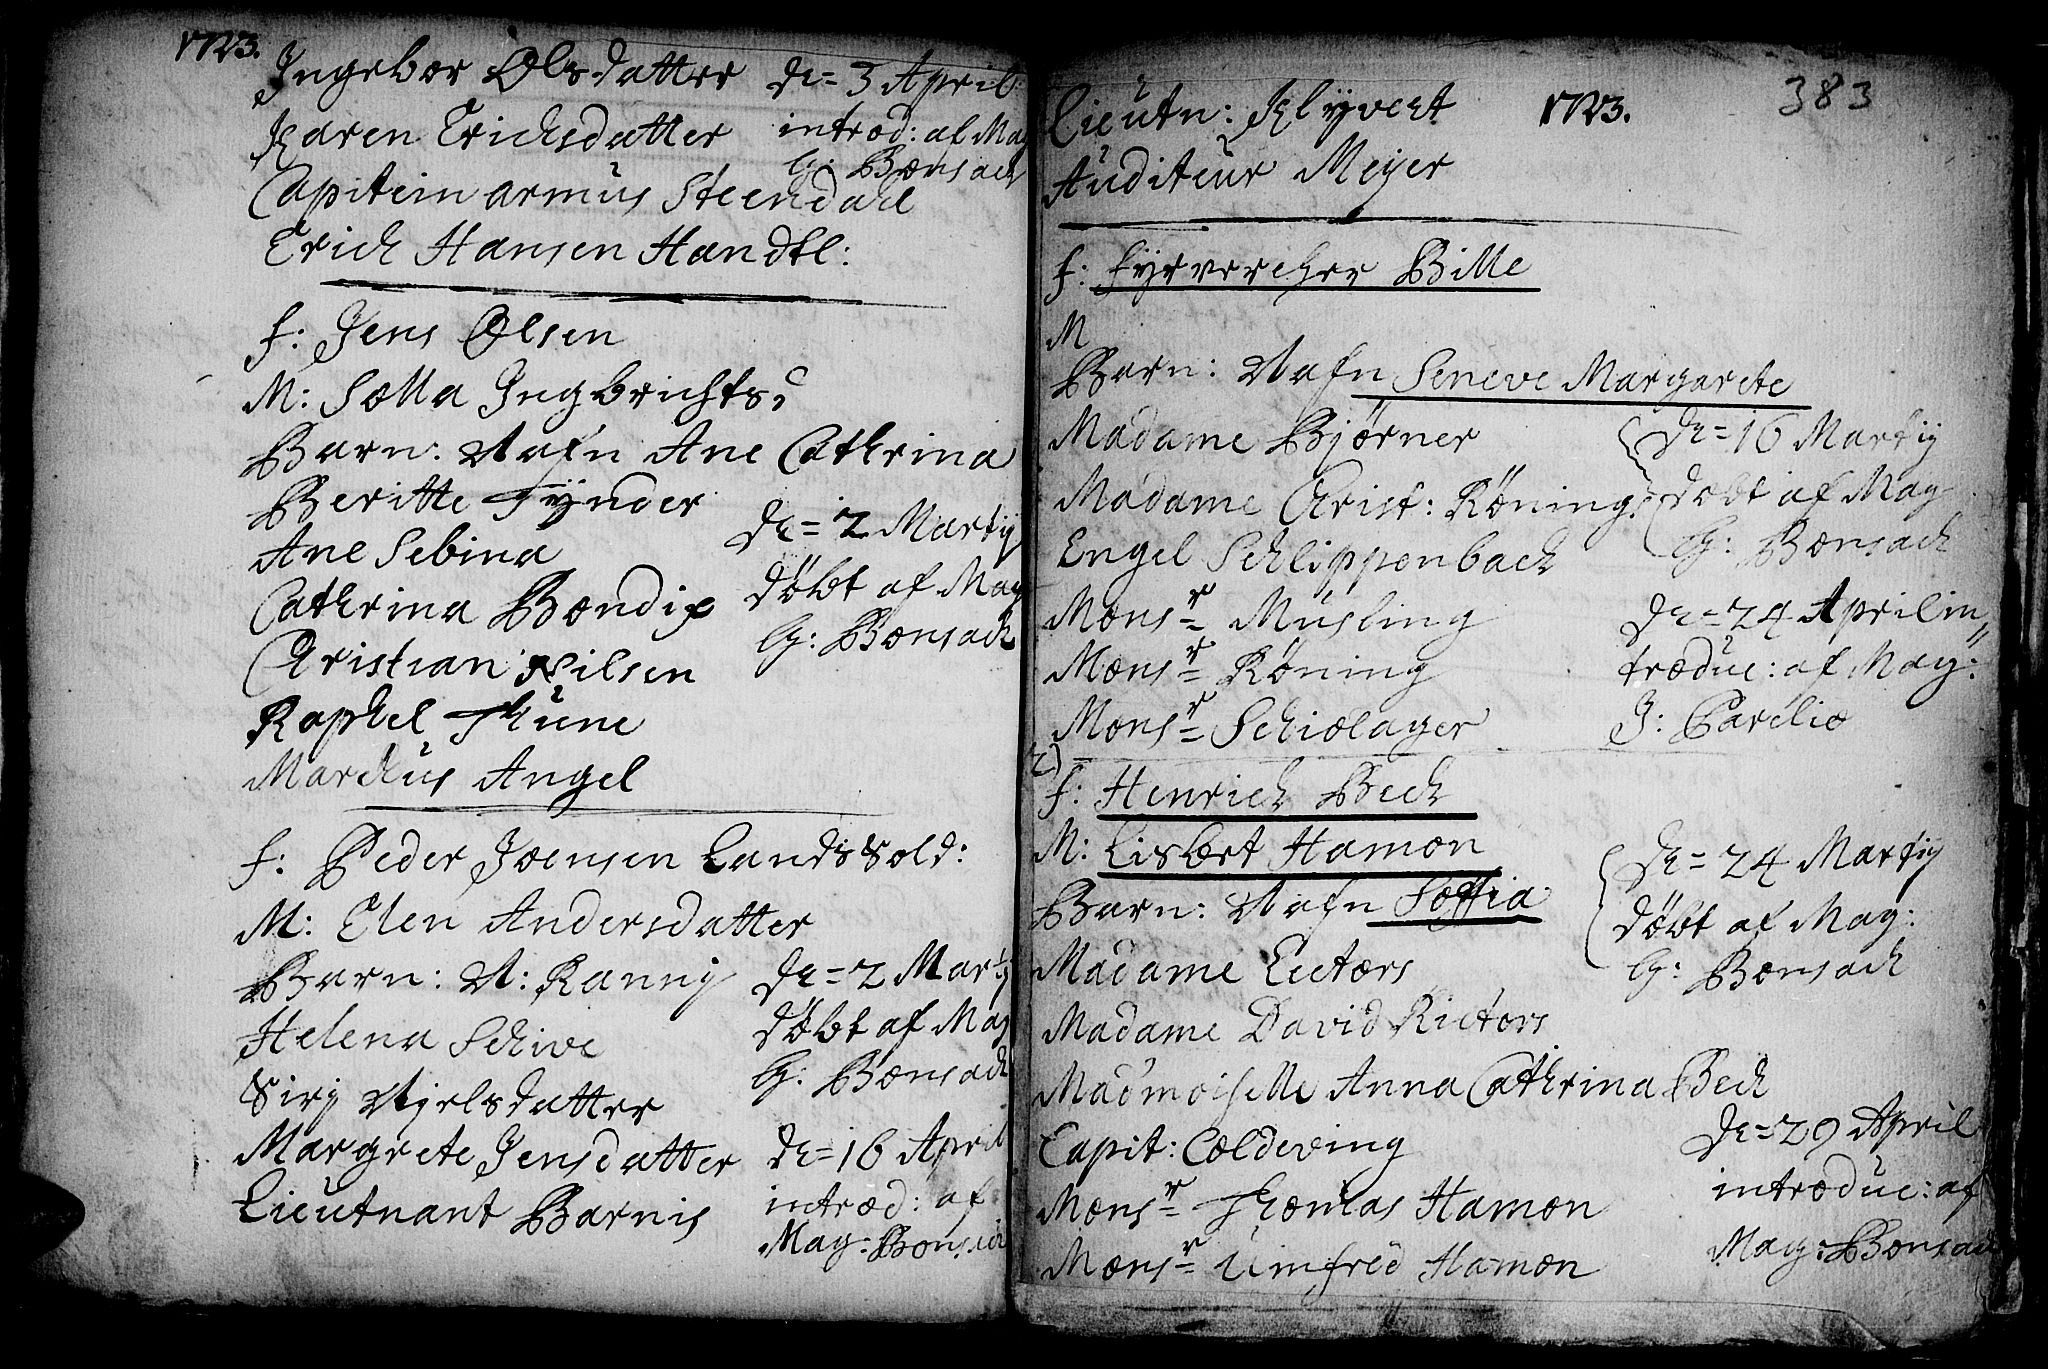 1723.
Ingebor Olsdatter
Karen Ericksdatter
Capitein armus Steendahl
Erich Hansen Handtl:
De= 3 April
introd: af Mag
G: Bonsach
f: Jens Olsen
M: Solla Ingbrichts
Barn: Nafn Ane Cathrina
Beritte Tÿnder
Ane Sebina
Cathrina Bondix
Christian Nilsen
Raphel Thune
Marckus Angel
De= 2 Martij
döbt af Mag
G: Bonsach
f: Peder Joensen Landssold:
M: Elen Andersdatter
Barn: N: Rannij
Helena Schive
Sirj Njelsdatter
Margrete Jensdatter
Lieutnant Barnis
De= 2 Martij
döbt af Mag
G: Bonsach
De= 16 April
introd: af
Mag: Bonsach
383
1723.
Lieutn: Klÿvert
Auditeur Meijer
f: fyrvercher Bille
M
Barn: Nafn Seneve Margarete
Madame Bjørner
Madame Christ: Røning
Engel Schlippenbach
Monsr= Musling
Monsr= Røning
Monsr= Schiolager
De= 16 Martij
dobt af Mag
G: Bonsach
De= 24 April in„
troduc: af Mag:
J: Parelio
2)
f: Henrich Bech
M: Lisbet Hamon
Barn: Nafn Soffia
Madame Lectors
Madame David Rictors
Madmoiselle Anna Cathrina Bech
Capit: Coldeving
Monsr= Thomas Hamon
Monsr= Umfred Hamon
De= 24 Martij
döbt af Mag:
G: Bonsach
De= 29 April
introduc: af
Mag: Bonsach